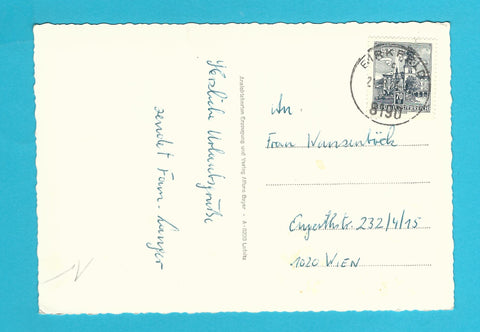 Herzliche Urlaubsgrüße
sendet Fam. Langer
Ansichtskarten Erzeugung und Verlag Alfons Beyer - A-8200
BIRKFELD
8190
An.
Frau Wansenböck
Engerthstr. 232/4/15
1020 WIEN